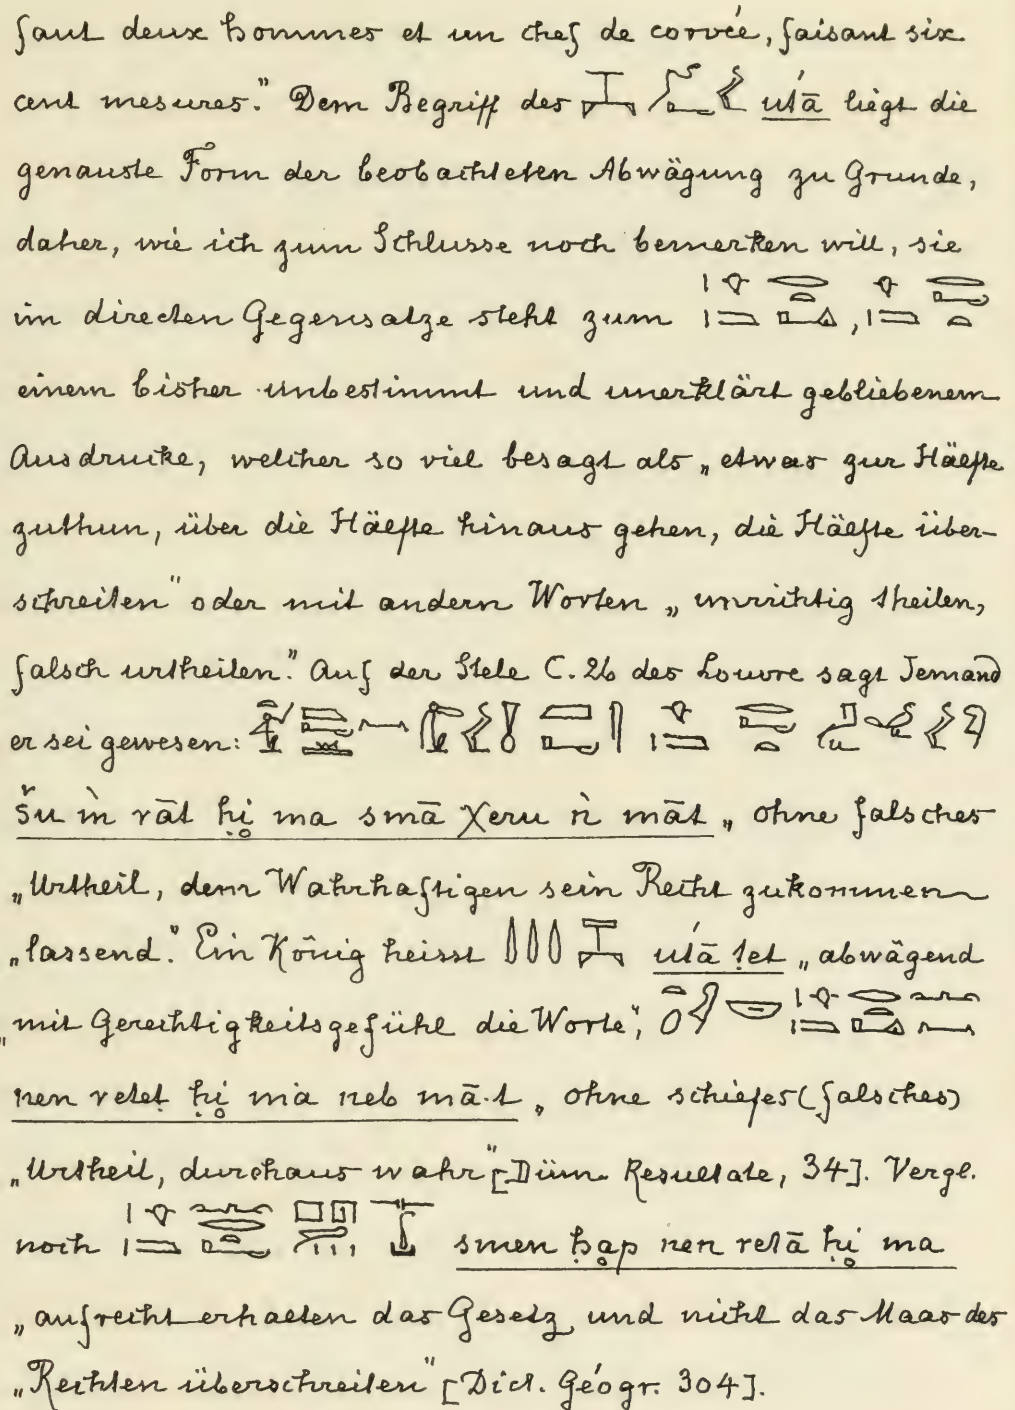 faut deux hommes et un chef de corvée, faisant six
cent mesures." Dem Begriff des utā liegt die
genauste Form der beobachteten Abwägung zu Grunde,
daher, wie ich zum Schlusse noch bemerken will, sie
im directen Gegensatze steht zum ,
einem bisher unbestimmt und unerklärt gebliebenem
Ausdrucke, welcher so viel besagt als „etwas zur Hälfte
zuthun, über die Hälfte hinaus gehen, die Hälfte über-
schreiten" oder mit andern Worten „unrichtig theilen,
falsch urtheilen." Auf der Stele C. 26 des Louvre sagt Jemand
er sei gewesen:
šu m̀ rāt ḥi̥ ma smā χeru ǹ māt „ohne falsches
„Urtheil, dem Wahrhaftigen sein Recht zukommen
„lassend." Ein König heisst utā ṭet „abwägend
„mit Gerechtigkeitsgefühl die Worte",
nen reteṭ ḥi̥ ma neb mā.t „ohne schiefes (falsches)
„Urtheil, durchaus wahr" [Düm. Resultate, 34]. Vergl.
noch smen ḥap nen retā ḥi̥ ma
„aufrecht erhalten das Gesetz und nicht das Maas des
„Rechten überschreiten" [Dict. Géogr. 304].